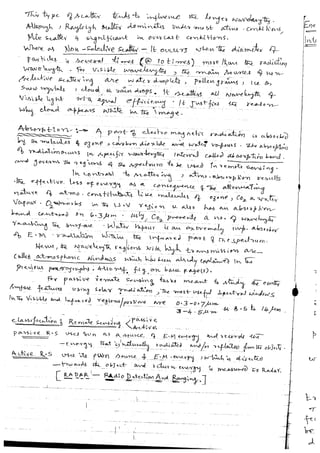 This type of scatter tends to influence the longer wavelengths.
Although, Rayleigh scatter dominates under most atmo. conditions,
Mie scatter is significant in overcast conditions.
Where as Non-Selective Scatter - It occurs when the diameter of
particles is several times (@ 10 times) more than the radiation
wavelength. For visible wavelengths, the main sources of non-
selective scattering are water droplets, pollen grains, ice &
snow crystals, cloud & rain drops. It scatters all wavelength of
visible light with equal efficiency. It justifies the reason
why cloud appears white in the image.
Absorption :- A part of electro magnetic radiation is absorbed
by the molecules of ozone, carbon dioxide and water vapours. The absorption
of radiation occurs in specific wavelengths interval called absorption band.
and governs the regions of the spectrum to be used in remote sensing.
In contrast to scattering, atmo. absorption results
the effective loss of energy as a consequence of the attenuating
nature of atmo. constituents like molecules of ozone, CO2 & water
vapour. in the U.V region & also has an absorption
band centred on 6.3 μm. CO2 prevents a no. of wavelength
reaching the surface. Water vapour is an extremely imp. absorber
of E.M. radiation within the infrared part of the spectrum.
Hence, the wavelength regions with high transmission are
called atmospheric windows which has been already explained in the
previous paragraphs (Also ref. fig. on back page).
For passive remote sensing tasks meant to study the earth
surface features using solar radiation, the most useful spectral windows
in the visible and infrared regions/portions are 0.3-0.7 μm
3-4.5 μm & 8.5 to 14 μm
Classification of Remote Sensing Passive
Active
Passive R.S uses sun as a source of E.M energy and records the
energy that is naturally radiated and/or reflected from the objects.
Active R.S uses its own source of E.M. energy, which is directed
towards the object and return energy is measured Ex Radar.
[RADAR - RAdio Detection And Ranging.]